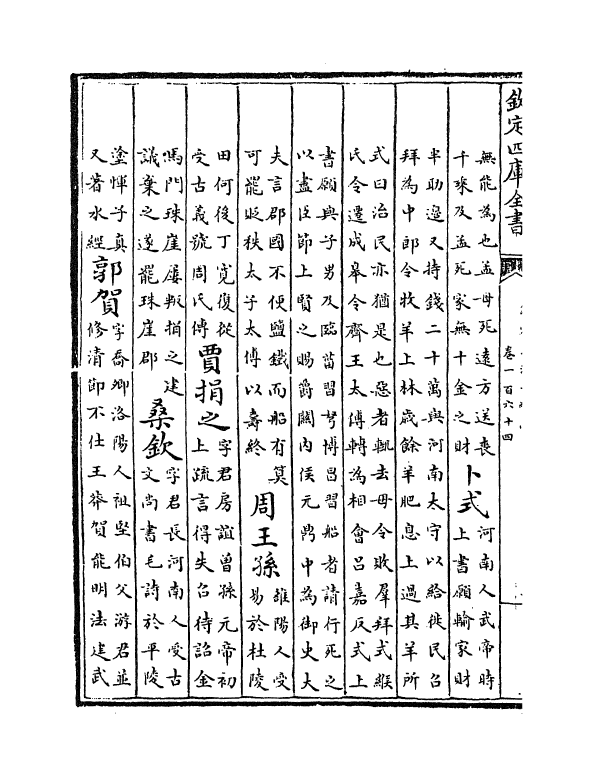 欽定四庫全書
卷一百六十四
無能為也孟母死遠方送喪
千乘及孟死家無十金之財
卜式
河南人武帝時
上書願輸家財
半助邉又持錢二十萬與河南太守以給徙民召
拜為中郎令牧羊上林歳餘羊肥息上過其羊所
式曰治民亦猶是也惡者輒去毋令敗羣拜式緱
氏令遷成臯令齊王太傅轉為相會吕嘉反式上
書願與子男及臨菑習弩博昌習船者請行死之
以盡臣節上賢之賜爵關内侯元鼎中為御史大
夫言郡國不便鹽鐵而船有算
可罷貶秩太子太傅以壽終
周王孫
雒陽人受
易於杜陵
田何後丁寛復從
受古義號周氏傳
賈捐之
字君房誼曽孫元帝初
上疏言得失召待詔金
馬門珠崖屢叛捐之建
議棄之遂罷珠崖郡
桑欽
字君長河南人受古
文尚書毛詩於平陵
塗惲子真
又著水經
郭賀
字喬卿洛陽人祖堅伯父游君並
修清節不仕王莽賀能明法建武